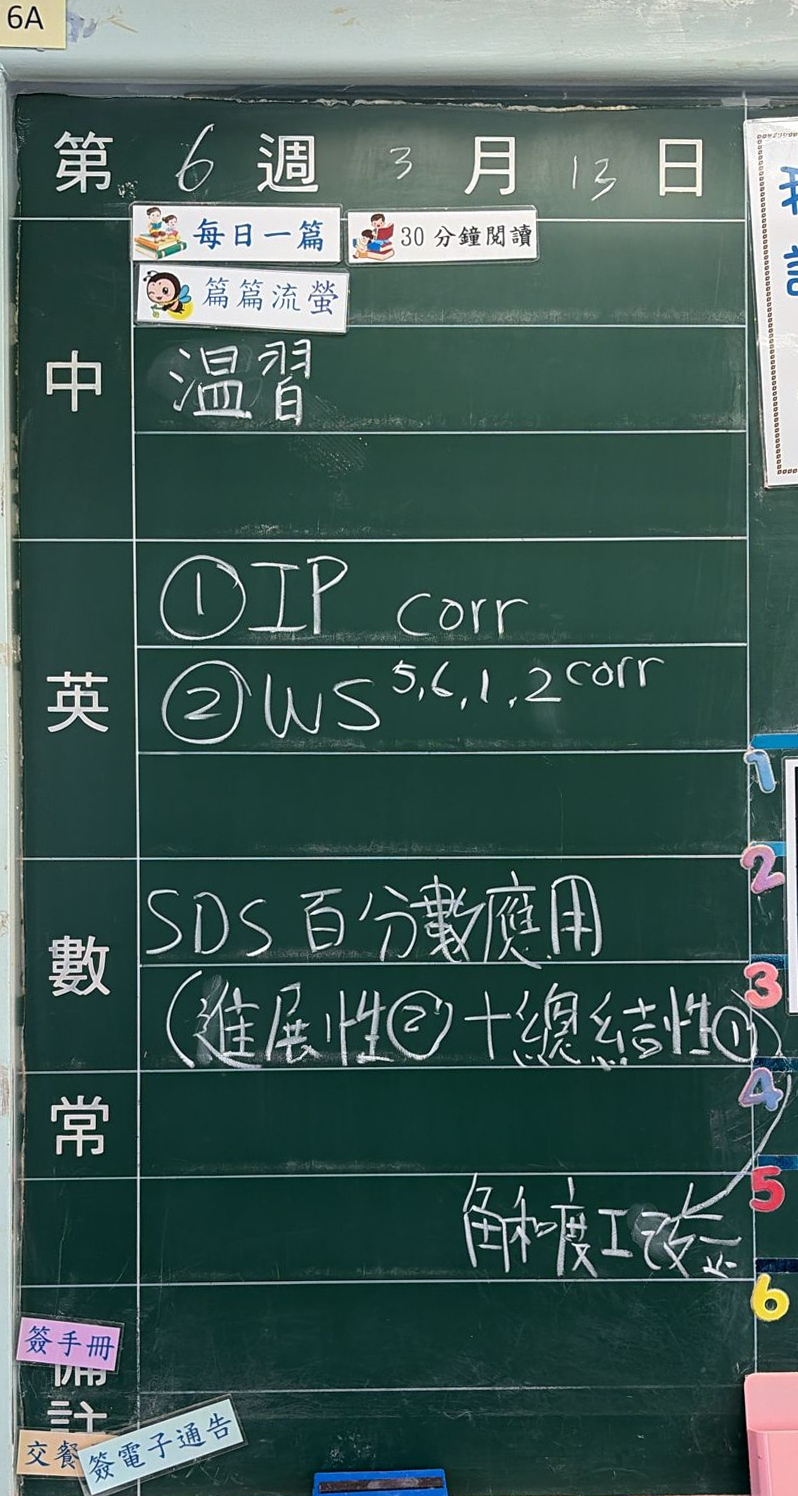 6A
第 6 週 3 月 13 日
每日一篇 30分鐘閱讀
篇篇流螢
中
溫習
英
①IP corr
②WS 5,6,1,2 corr
數
SDS 百分數應用
(進展性②+總結性①)
常
角和度工改
簽手冊
備註
交餐
簽電子通告
1
2
3
4
5
6